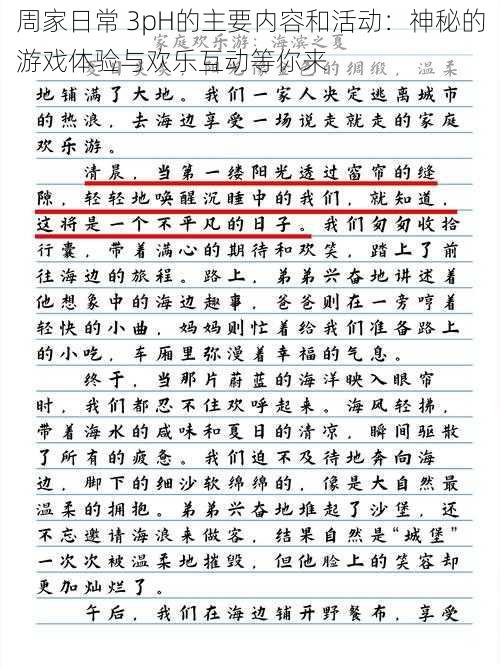 周家日常 3pH的主要内容和活动：神秘的
游戏体验与欢乐互动等你来
家庭欢乐游：海滨之夏
夏日炎炎，阳光如金色的绸缎，温柔
地铺满了大地。我们一家人决定逃离城市
的热浪，去海边享受一场说走就走的家庭
欢乐游。
清晨，当第一缕阳光透过窗帘的缝
隙，轻轻地唤醒沉睡中的我们，就知道，
这将是一个不平凡的日子。我们匆匆收拾
行囊，带着满心的期待和欢笑，踏上了前
往海边的旅程。路上，弟弟兴奋地讲述着
他想象中的海边趣事，爸爸则在一旁哼着
轻快的小曲，妈妈则忙着给我们准备路上
的小吃，车厢里弥漫着幸福的气息。
终于，当那片蔚蓝的海洋映入眼帘
时，我们都忍不住欢呼起来。海风轻拂，
带着海水的咸味和夏日的清凉，瞬间驱散
了所有的疲惫。我们迫不及待地奔向海
边，脚下的细沙软绵绵的，像是大自然最
温柔的拥抱。弟弟兴奋地堆起了沙堡，还
不忘邀请海浪来做客，结果自然是“城堡”
一次次被温柔地摧毁，但他脸上的笑容却
更加灿烂了。
午后，我们在海边铺开野餐布，享受